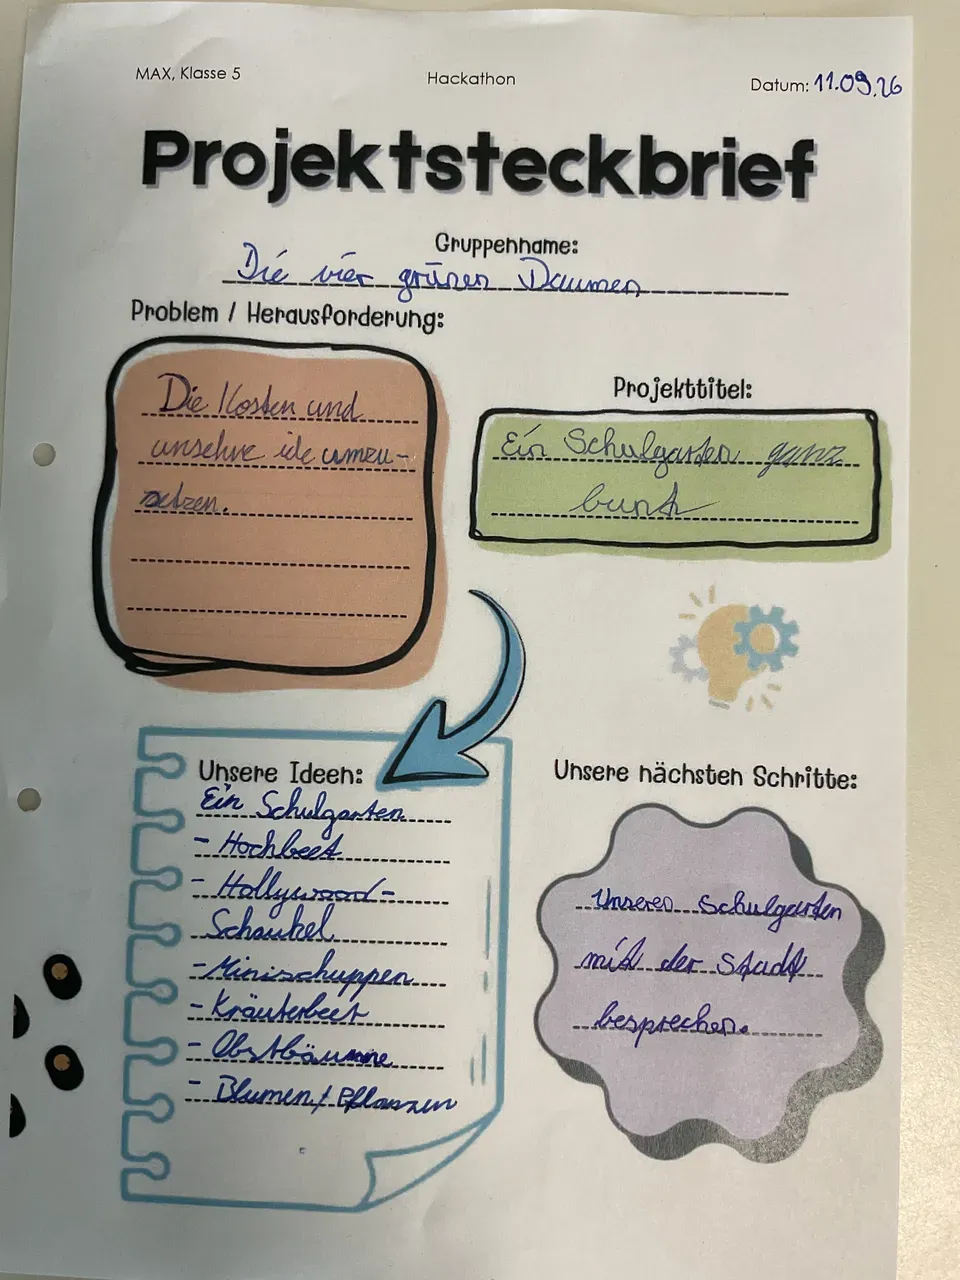 MAX, Klasse 5
Hackathon
Datum: 11.09.26
Projektsteckbrief
Gruppenname:
Die vier grünen Daumen
Problem / Herausforderung:
Die Kosten und
unsehre ide umzu-
setzen.
Projekttitel:
Ein Schulgarten ganz
bunt
Unsere Ideen:
Ein Schulgarten
- Hochbeet
- Hollywood-
Schaukel
- Minischuppen
- Kräuterbeet
- Obstbäume
- Blumen / Pflanzen
Unsere nächsten Schritte:
Unseren Schulgarten
mit der Stadt
besprechen.